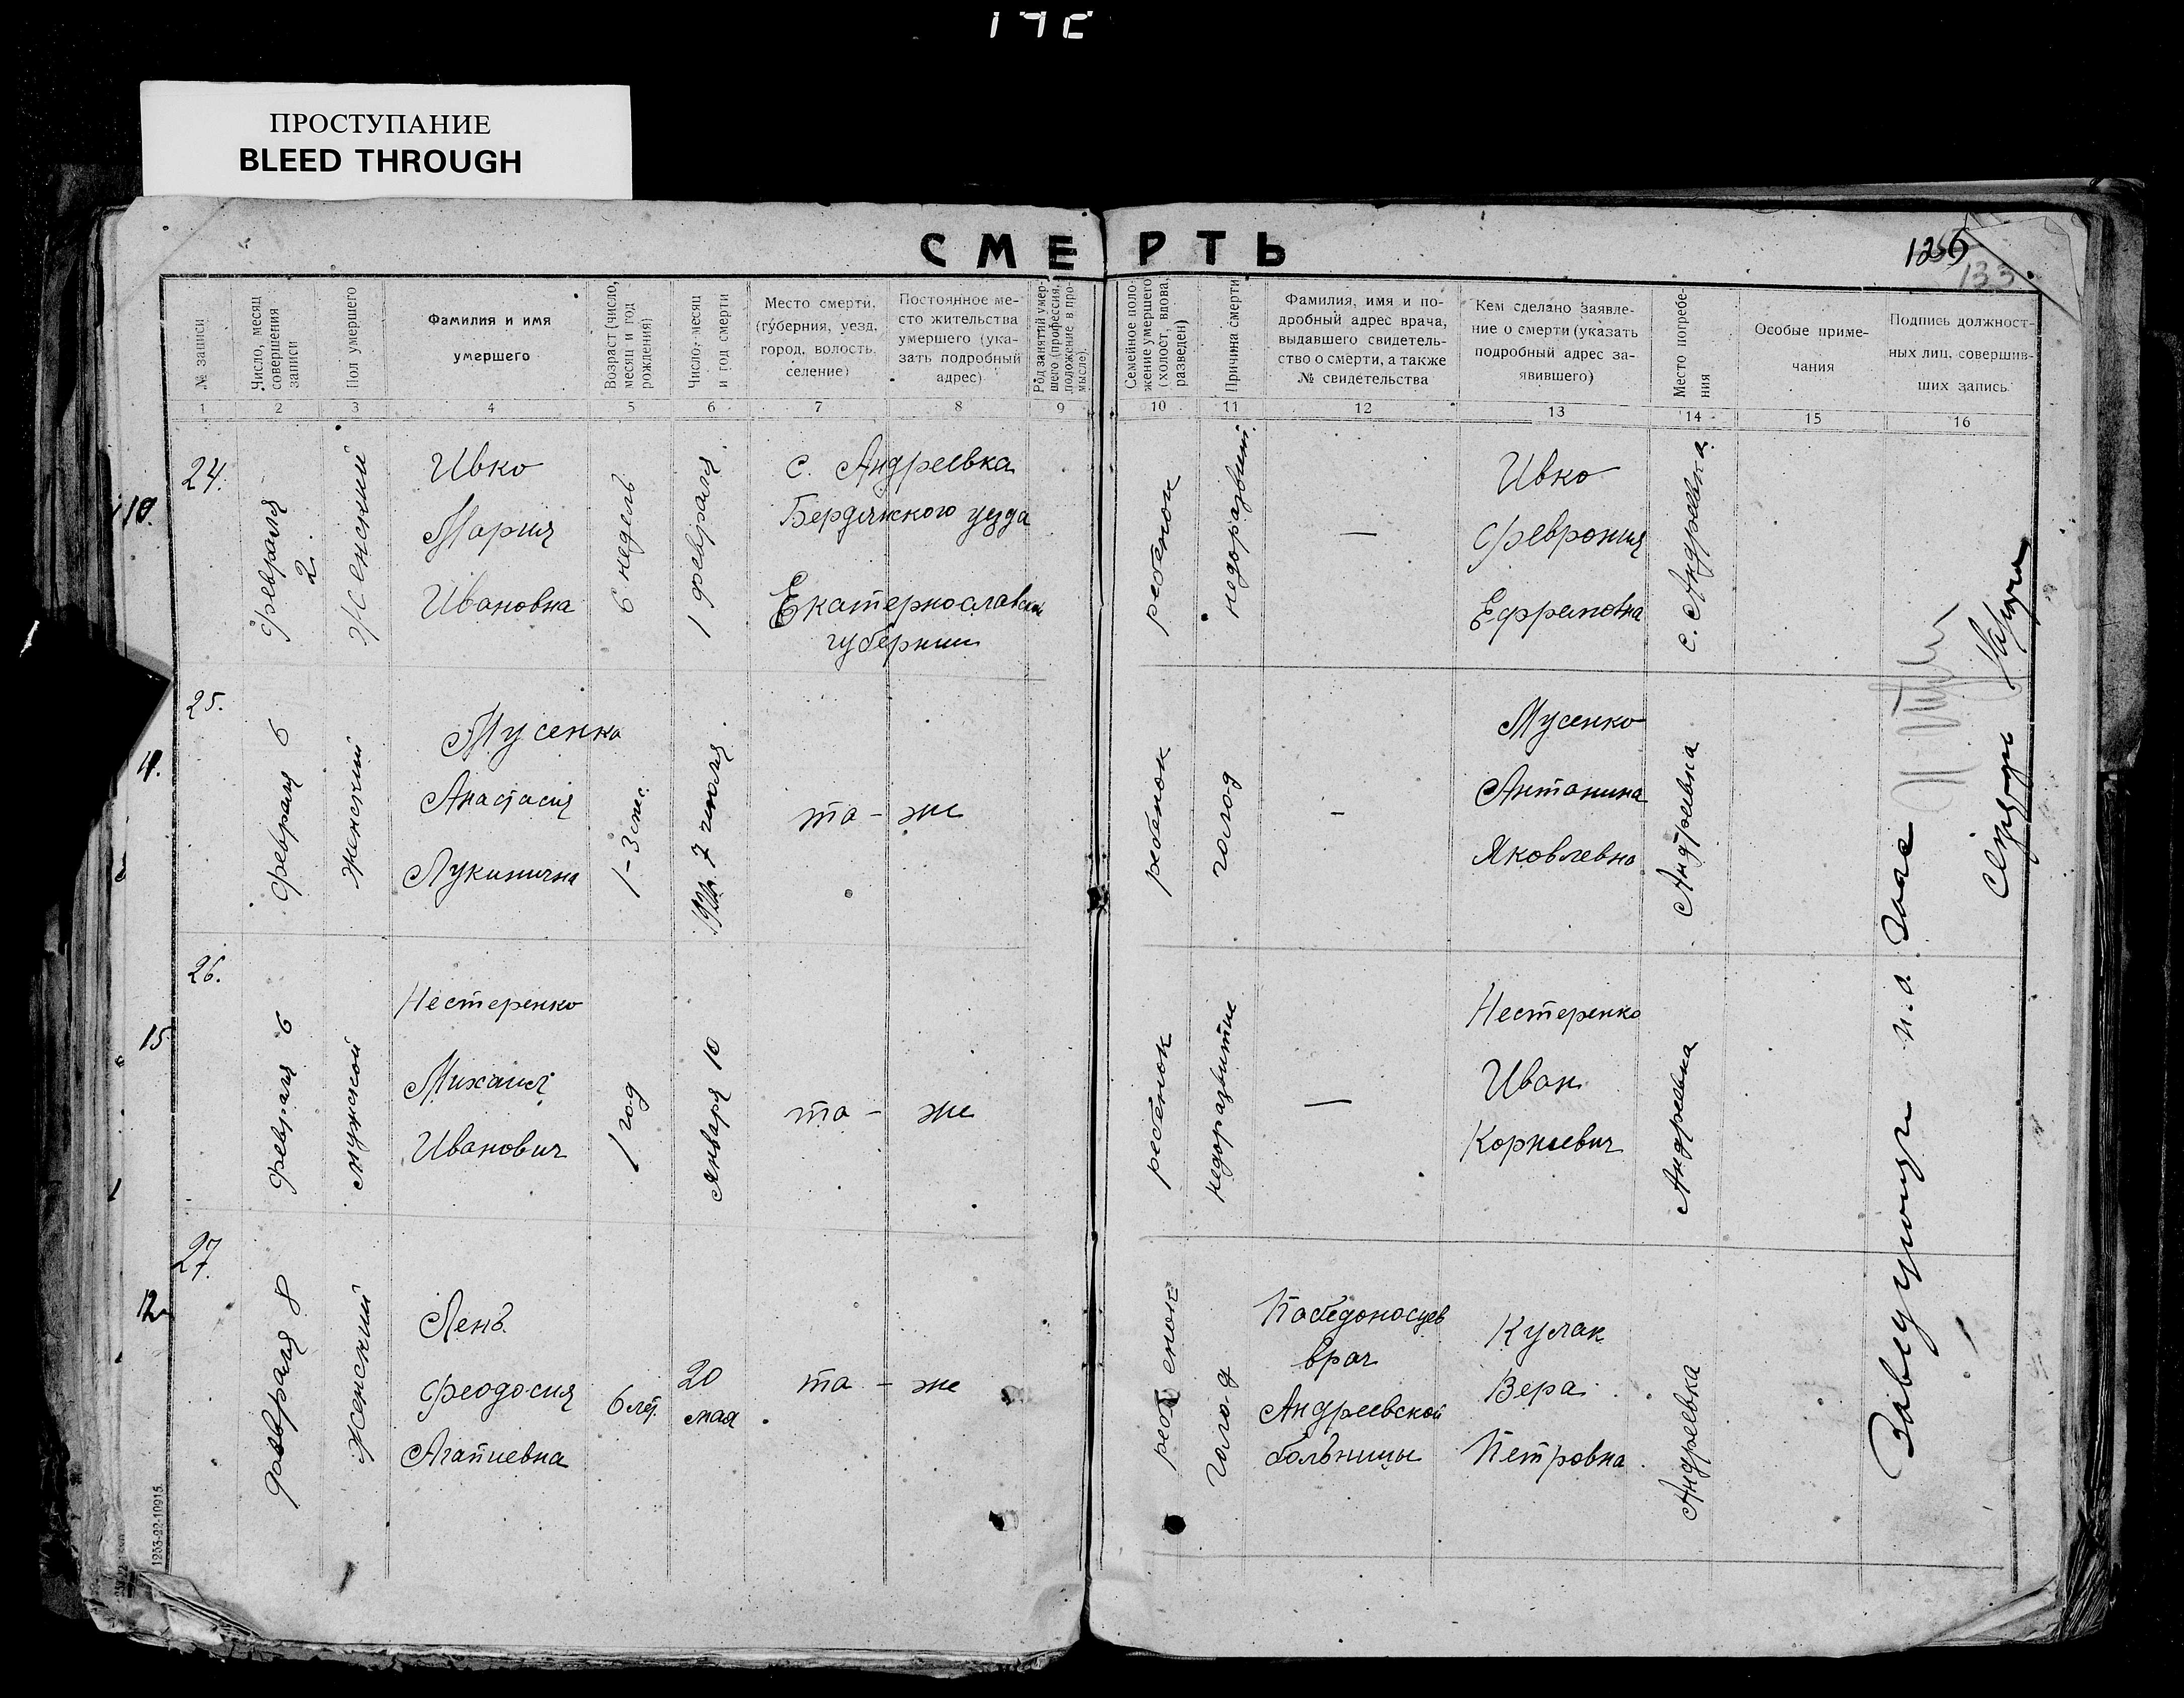 ПРОСТУПАНИЕ
BLEED THROUGH
СМЕРТЬ
133
№ записи
Число, месяц совершения записи
Пол умершего
Фамилия и имя
умершего
Возраст (число, месяц и год рождения)
Число, месяц и год смерти
Место смерти,
(губерния, уезд,
город, волость,
селение)
Постоянное ме-
сто жительства
умершего (ука-
зать подробный
адрес)
Род занятий умер-
шего (профессия,
положение в про-
мысле).
Семейное поло-
жение умершего
(холост, вдова,
разведен)
Причина смерти
Фамилия, имя и по-
дробный адрес врача,
выдавшего свидетель-
ство о смерти, а также
№ свидетельства
Кем сделано заявле-
ние о смерти (указать
подробный адрес за-
явившего)
Место погребе-
ния
Особые приме-
чания
Подпись должност-
ных лиц, совершив-
ших запись.
1 2 3 4 5 6 7 8 9 10 11 12 13 14 15 16
24.
10.
февраля
2.
Женский
Ивко
Мария
Ивановна
6 недель
1 февраля.
с. Андреевка
Бердянского уезда
Екатеринославск
губернии
ребенок
недоразвит.
—
Ивко
Феврония
с. Андреевка
25.
11.
февраля 6
женский
Мусенко
Анастасия
Лукинична
1-3 мес.
та - же
ребенок
голод
-
Мусенко
Антонина
Яковлевна
Андреевка
26.
15
февраля 6
мужской
Нестеренко
Михаил
Иванович
1 год
января 10
та - же
ребенок
недоразвитие
—
Нестеренко
Иван
Корнеевич
Андреевка
27.
12
февраля 8
женский
Лень
Феодосия
Агапиевна
6 лет.
20
мая
та - же
ребенок
голод
Победоносцев
врач
Андреевской
больницы
Кулак
Вера
Петровна
Андреевка
Заведующий п. о. Загс
Секретарь
1253-22-10915.